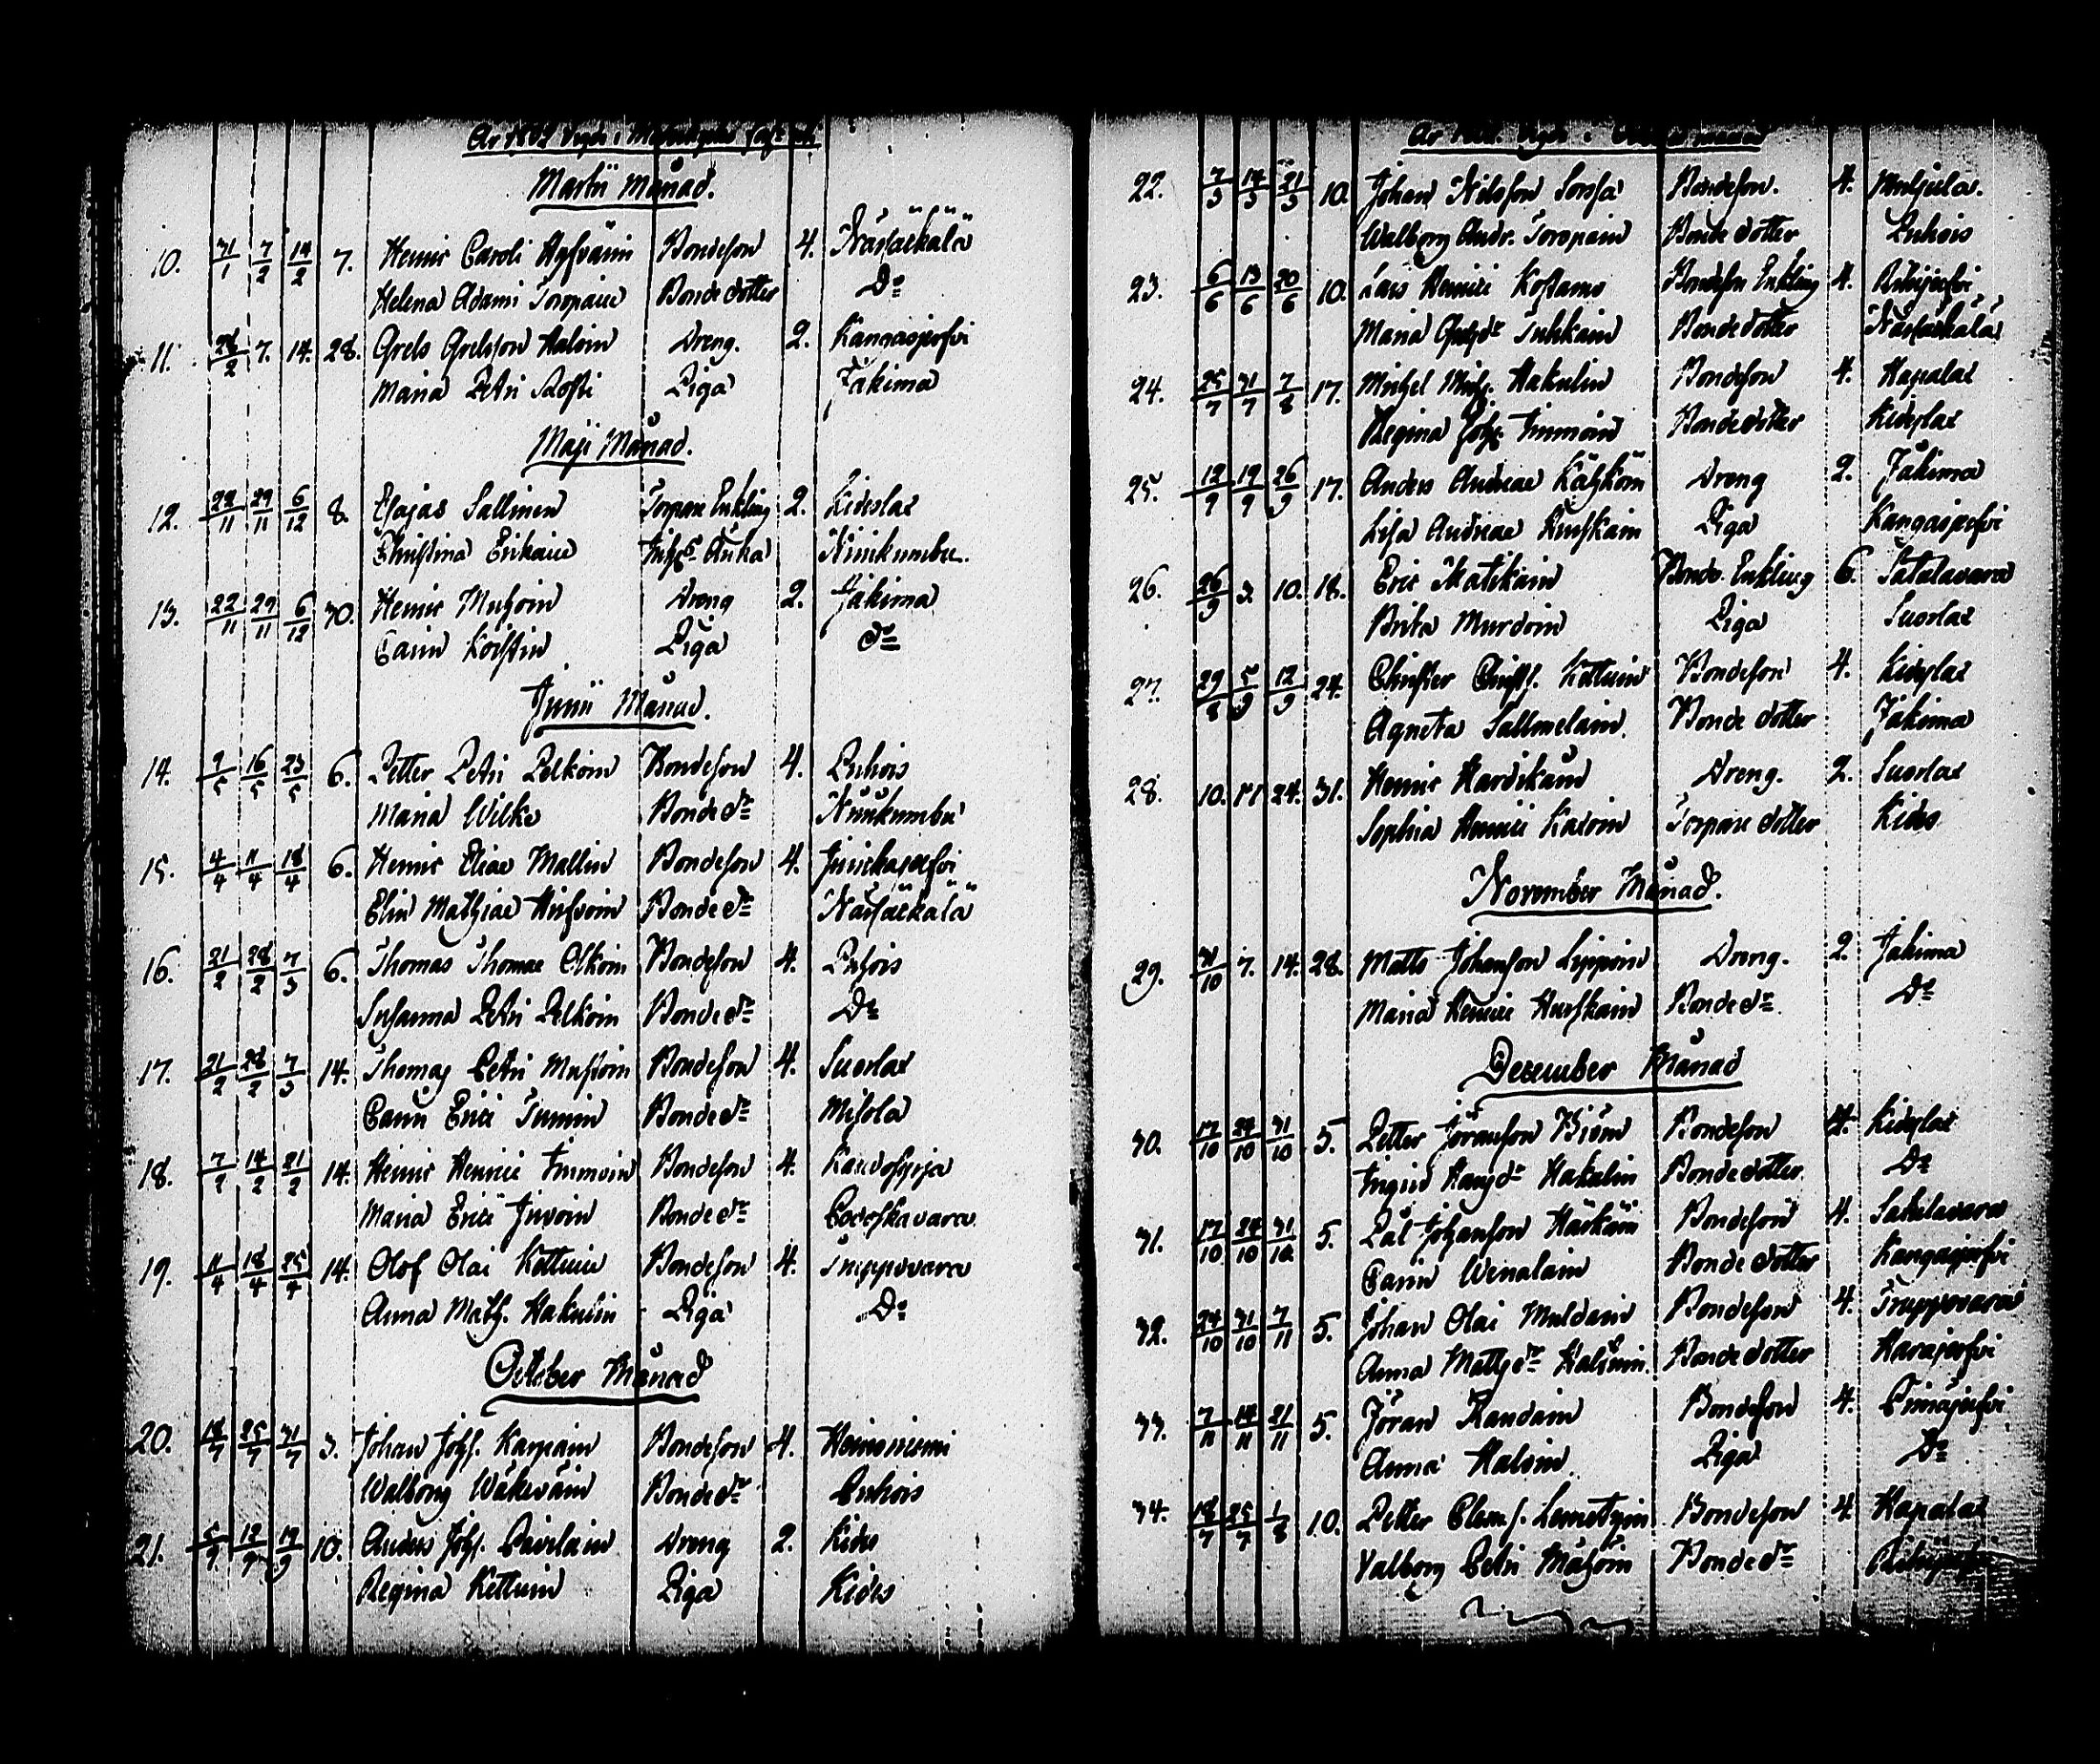 Martii Månad.
10. 31/1 7/2 14/2 7. Henric Caroli Hyfväin Bondeson 4. Närsäckälä
Helena Adami Toropain Bonde dotter Do
11. 28/2 7. 14. 28. Grels Grelsson Haloin Dreng. 2. Kangasjerfvi
Maria Petri Piga Jakima
Maji Månad.
12. 22/11 29/11 6/12 8. Esajas Sallinen Torpare Enkling 2. Kideslax
Christina Erikain Inhs Änka Niinikumbu.
13. 22/11 29/11 6/12 30. Henric Mutzoin Dreng 2. Jakima
Carin Koistin Piga do
Junii Månad.
14. 9/5 16/5 23/5 6. Petter Petri Pelkoin Bondeson 4. Puhois
Maria Wilke Bonde dr Niinikumbu
15. 4/4 11/4 18/4 6. Henric Eliae Mallin Bondeson 4. Juurikajerfvi
Elin Mathiae Hirfvoin Bonde dr Närsäckälä
16. 21/2 28/2 7/3 6. Thomas Thomae Olkoin Bondeson 4. Puhois
Susanna Petri Pelkoin Bonde dr Do
17. 21/2 28/2 7/3 14. Thomas Petri Mustoin Bondeson 4. Suorlax
Carin Erici Turuin Bonde dr Misola
18. 7/2 14/2 21/2 14. Henric Henrici Immoin Bondeson 4.
Maria Erici Juvoin Bonde dr
19. 11/4 18/4 25/4 14. Olof Olai Kettuin Bondeson 4. Truppovara
Anna Math. Hakulin Piga Do
October Månad
20. 18/7 25/7 31/7 3. Johan Johs. Karpain Bondeson 4. Heinoniemi
Walborg Wäkeväin Bonde dr Puhois
21. 5/9 12/9 19/9 10. Anders Johs. Pavilain Dreng 2. Kides
Regina Kettuin Piga Kides
22. 7/3 14/3 21/3 10. Johan Nilsson Sorsa Bondeson. 4. Muljula.
Walborg Andr. Toropain Bonde dotter Puhois
23. 6/6 13/6 20/6 10. Lars Henrici Kostamo Bondeson Enkling 4. Riihijerfvi
Maria Tuhkain Bonde dotter Närsäckälä
24. 25/7 31/7 7/8 17. Michel Mich. Hakulin Bondeson 4. Hapalax
Regina Johs. Immoin Bonde dotter Kideslax
25. 12/9 19/9 26/9 17. Anders Andreae Käyhköin Dreng 2. Jakima
Lisa Andreae Hurskain Piga Kangasjerfvi
26. 26/9 3. 10. 18. Eric Matikain Bonde Enkling 6. Satulavara
Brita Murdoin Piga Suorlax
27. 29/8 5/9 12/9 24. Christer Christ. Kettuin Bondeson 4. Kideslax
Agneta Sallmelain. Bonde dotter Jakima
28. 10. 17. 24. 31. Henric Hardikain Dreng. 2. Suorlax
Sophia Henrici Karoin Torpare dotter Kides
November Månad.
29. 31/10 7. 14. 28. Matts Johansson Lippoin Dreng. 2. Jakima
Maria Henrici Hurskain Bonde dr Do
December Månad
30. 17/10 24/10 31/10 5. Petter Göransson Biörn Bondeson 4. Kideslax
Ingrid Hansdr Hakulin Bonde dotter. Do
31. 17/10 24/10 31/10 5. Pål Johansson Härköin Bondeson 4. Satulavara
Carin Wenalain Bonde dotter Kangasjerfvi
32. 24/10 31/10 7/11 5. Johan Olai Muldain Bondeson 4. Truppovara
Anna Mattsdr Haloin. Bonde dotter Harajerfvi
33. 7/11 14/11 21/11 5. Jöran Randain Bondeson 4.
Anna Haloin Piga Do
34. 18/7 25/7 1/8 10. Petter Clem. s. Lemetyin Bondeson 4. Hapalax
Valborg Petri Mutzoin Bonde dr